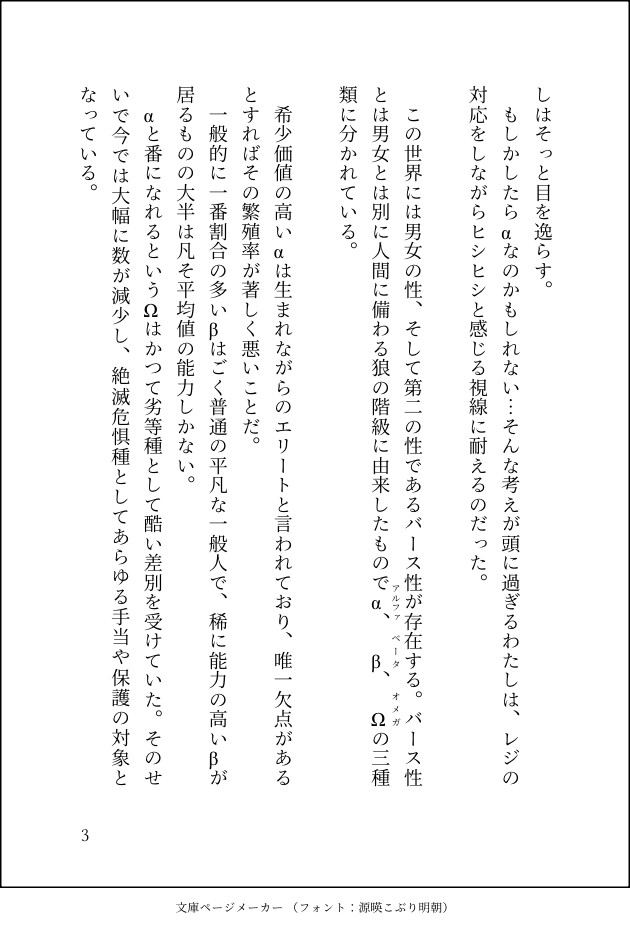 しはそっと目を逸らす。
もしかしたらαなのかもしれない…そんな考えが頭に過ぎるわたしは、レジの
対応をしながらヒシヒシと感じる視線に耐えるのだった。
この世界には男女の性、そして第二の性であるバース性が存在する。バース性
とは男女とは別に人間に備わる狼の階級に由来したものでα、β、Ωの三種
アルファ ベータ オメガ
類に分かれている。
希少価値の高いαは生まれながらのエリートと言われており、唯一欠点がある
とすればその繁殖率が著しく悪いことだ。
一般的に一番割合の多いβはごく普通の平凡な一般人で、稀に能力の高いβが
居るものの大半は凡そ平均値の能力しかない。
αと番になれるというΩはかつて劣等種として酷い差別を受けていた。そのせ
いで今では大幅に数が減少し、絶滅危惧種としてあらゆる手当や保護の対象と
なっている。
3
文庫ページメーカー（フォント：源暎こぶり明朝）